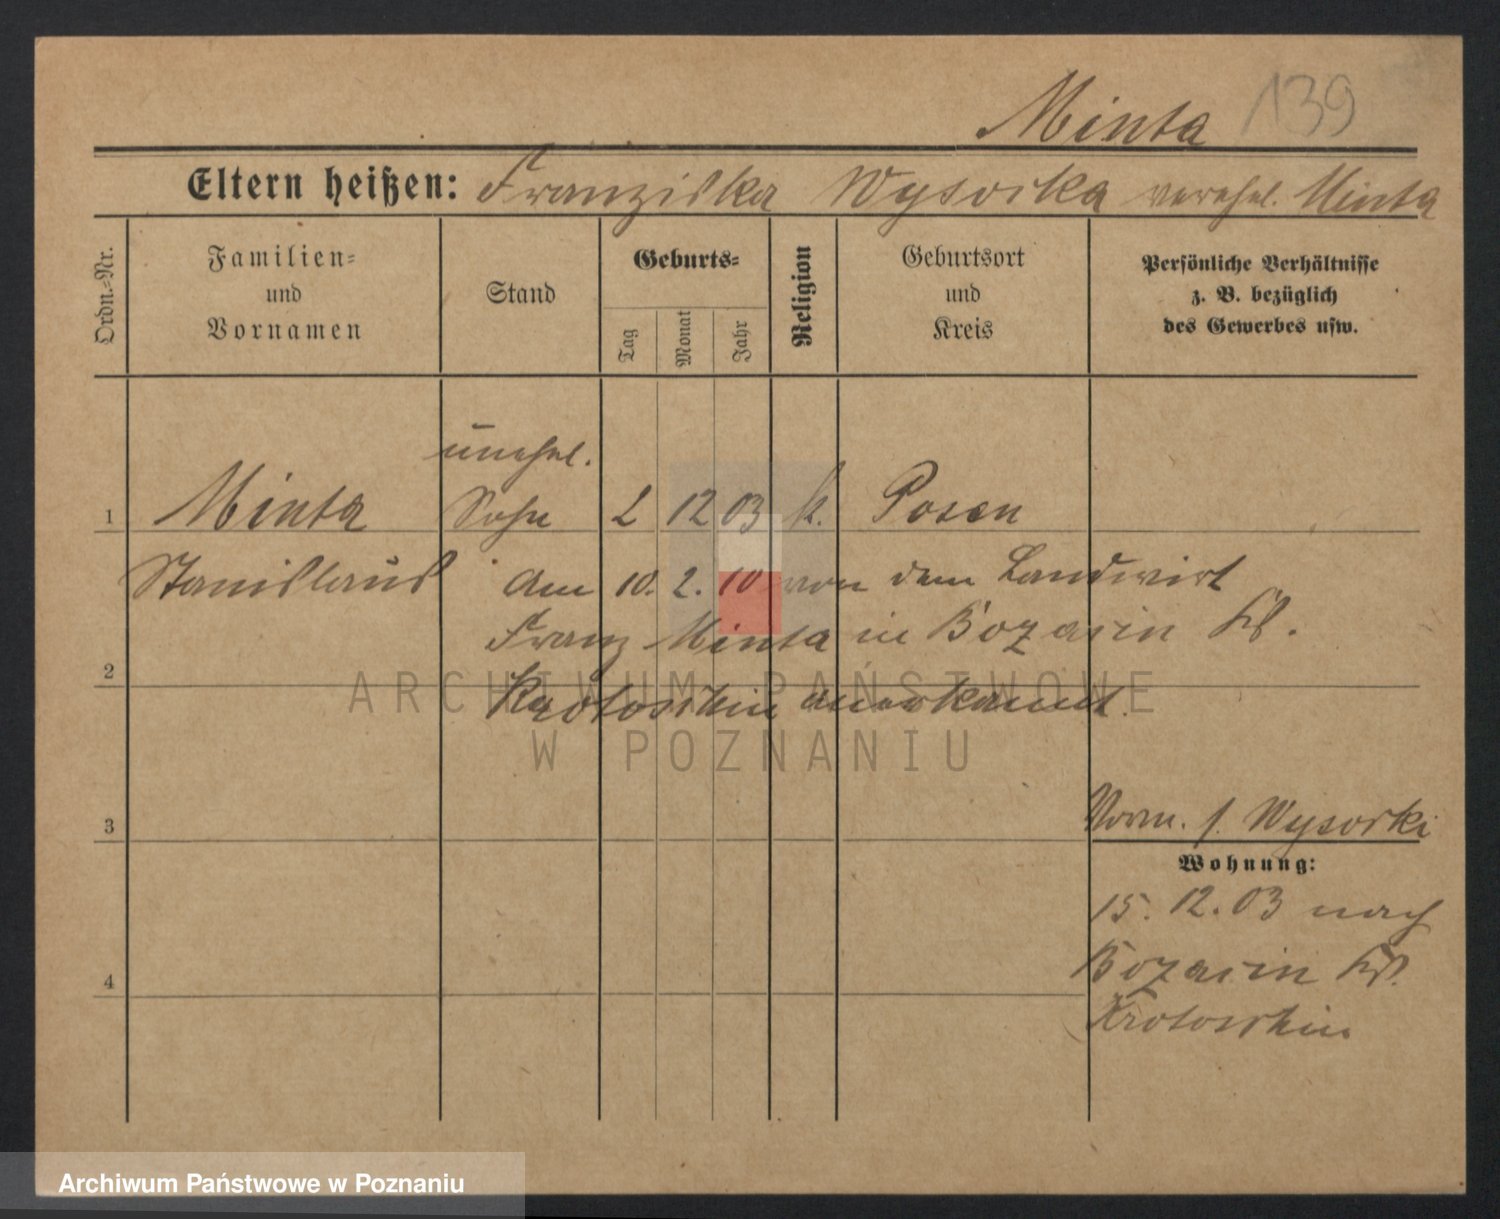 Minta 139
Eltern heißen: Franziska Wysocka verehel. Minta
Ordn.-Nr.
Familien-
und
Vornamen
Stand
Geburts-
Tag
Monat
Jahr
Religion
Geburtsort
und
Kreis
Persönliche Verhältnisse
z. B. bezüglich
des Gewerbes usw.
unehel.
1 Minta Sohn 2 12 03 k. Posen
Stanislaus Am 10. 2. 10 von dem Landwirt
Franz Minta in Bozacin Krs.
2
Krotoschin anerkannt.
ARCHIWUM PAŃSTWOWE
W POZNANIU
3
Vorm. f. Wysocki
Wohnung:
15. 12. 03 nach
Bozacin Krs.
4
Krotoschin
Archiwum Państwowe w Poznaniu